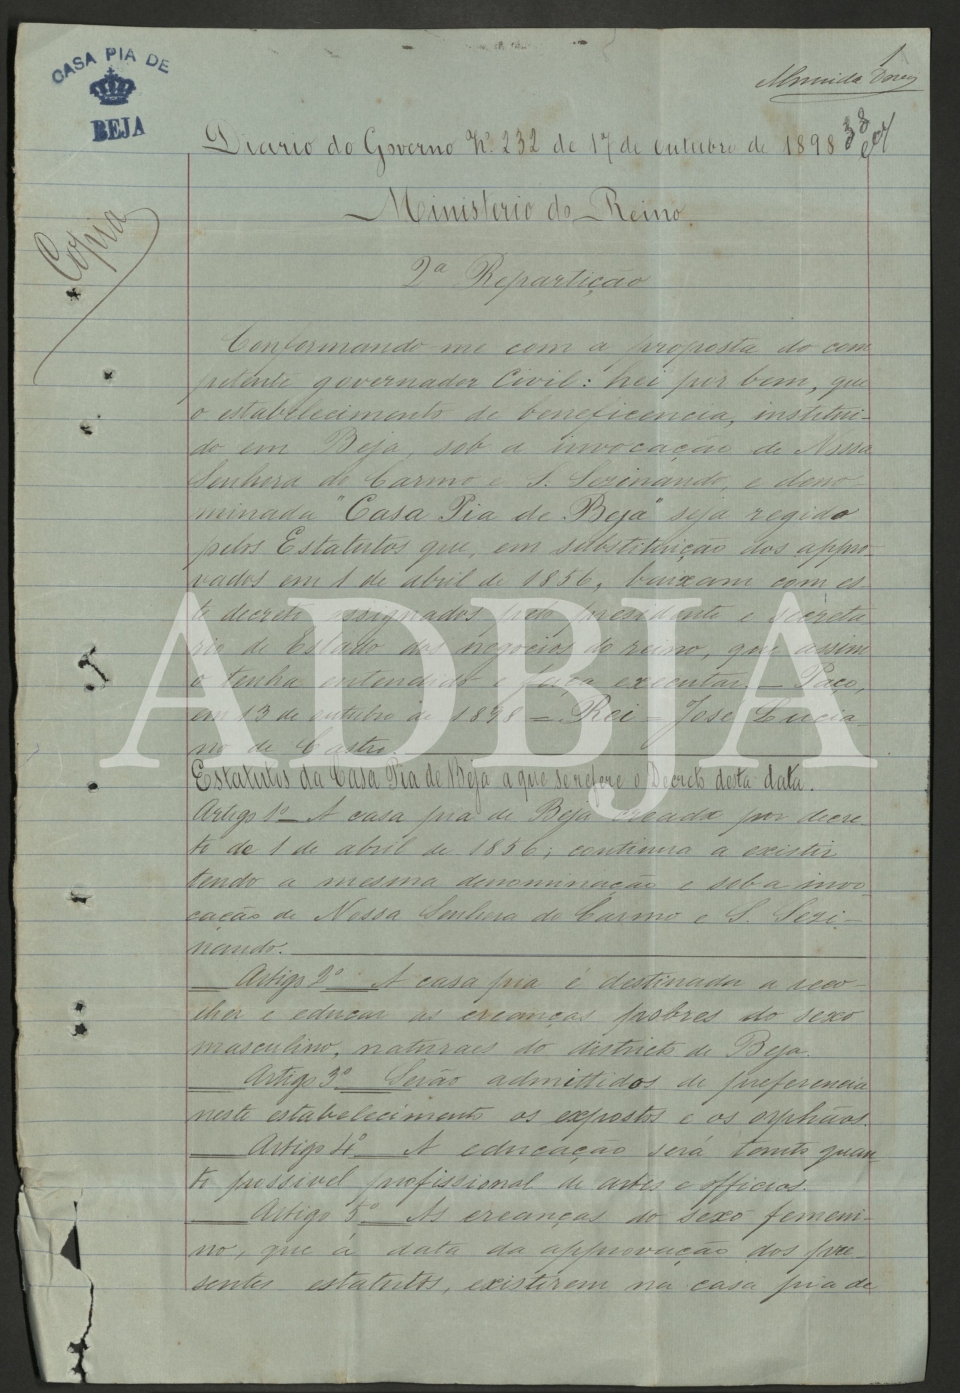 CASA PIA DE
BEJA
1
Diario do Governo Nº 232 de 17 de outubro de 1898
Copia
Ministerio do Reino
2ª Repartição
Conformando-me com a proposta do com
petente governador Civil: hei por bem, que
o estabelecimento de beneficencia, institui-
do em Beja, sob a invocação de Nossa
Senhora do Carmo e S. Sezinando, e deno
minada "Casa Pia de Beja" seja regido
pelos Estatutos que, em substituição dos appro-
vados em 1 de abril de 1856, baixam com es-
te decreto assignados pelo presidente e secreta
rio de Estado dos negocios do reino, que assim
o tenha entendido e faça executar. — Paço,
em 13 de outubro de 1898 = Rei = José Lucia-
no de Castro.
Estatutos da Casa Pia de Beja a que se refere o Decreto desta data.
Artigo 1º — A casa pia de Beja creada por decre-
to de 1 de abril de 1856, continua a existir
tendo a mesma denominação e sob a invo-
cação de Nossa Senhora do Carmo e S. Sezi-
nando.
Artigo 2º — A casa pia é destinada a reco-
lher e educar as creanças pobres do sexo
masculino, naturaes do districto de Beja.
Artigo 3º — Serão admittidos de preferencia
neste estabelecimento os expostos e os orphãos.
Artigo 4º — A educação será tanto quan-
to possivel profissional de artes e officios.
Artigo 5º — As creanças do sexo femeni-
no, que á data da approvação dos pre-
sentes estatutos, existirem na casa pia de
ADBJA